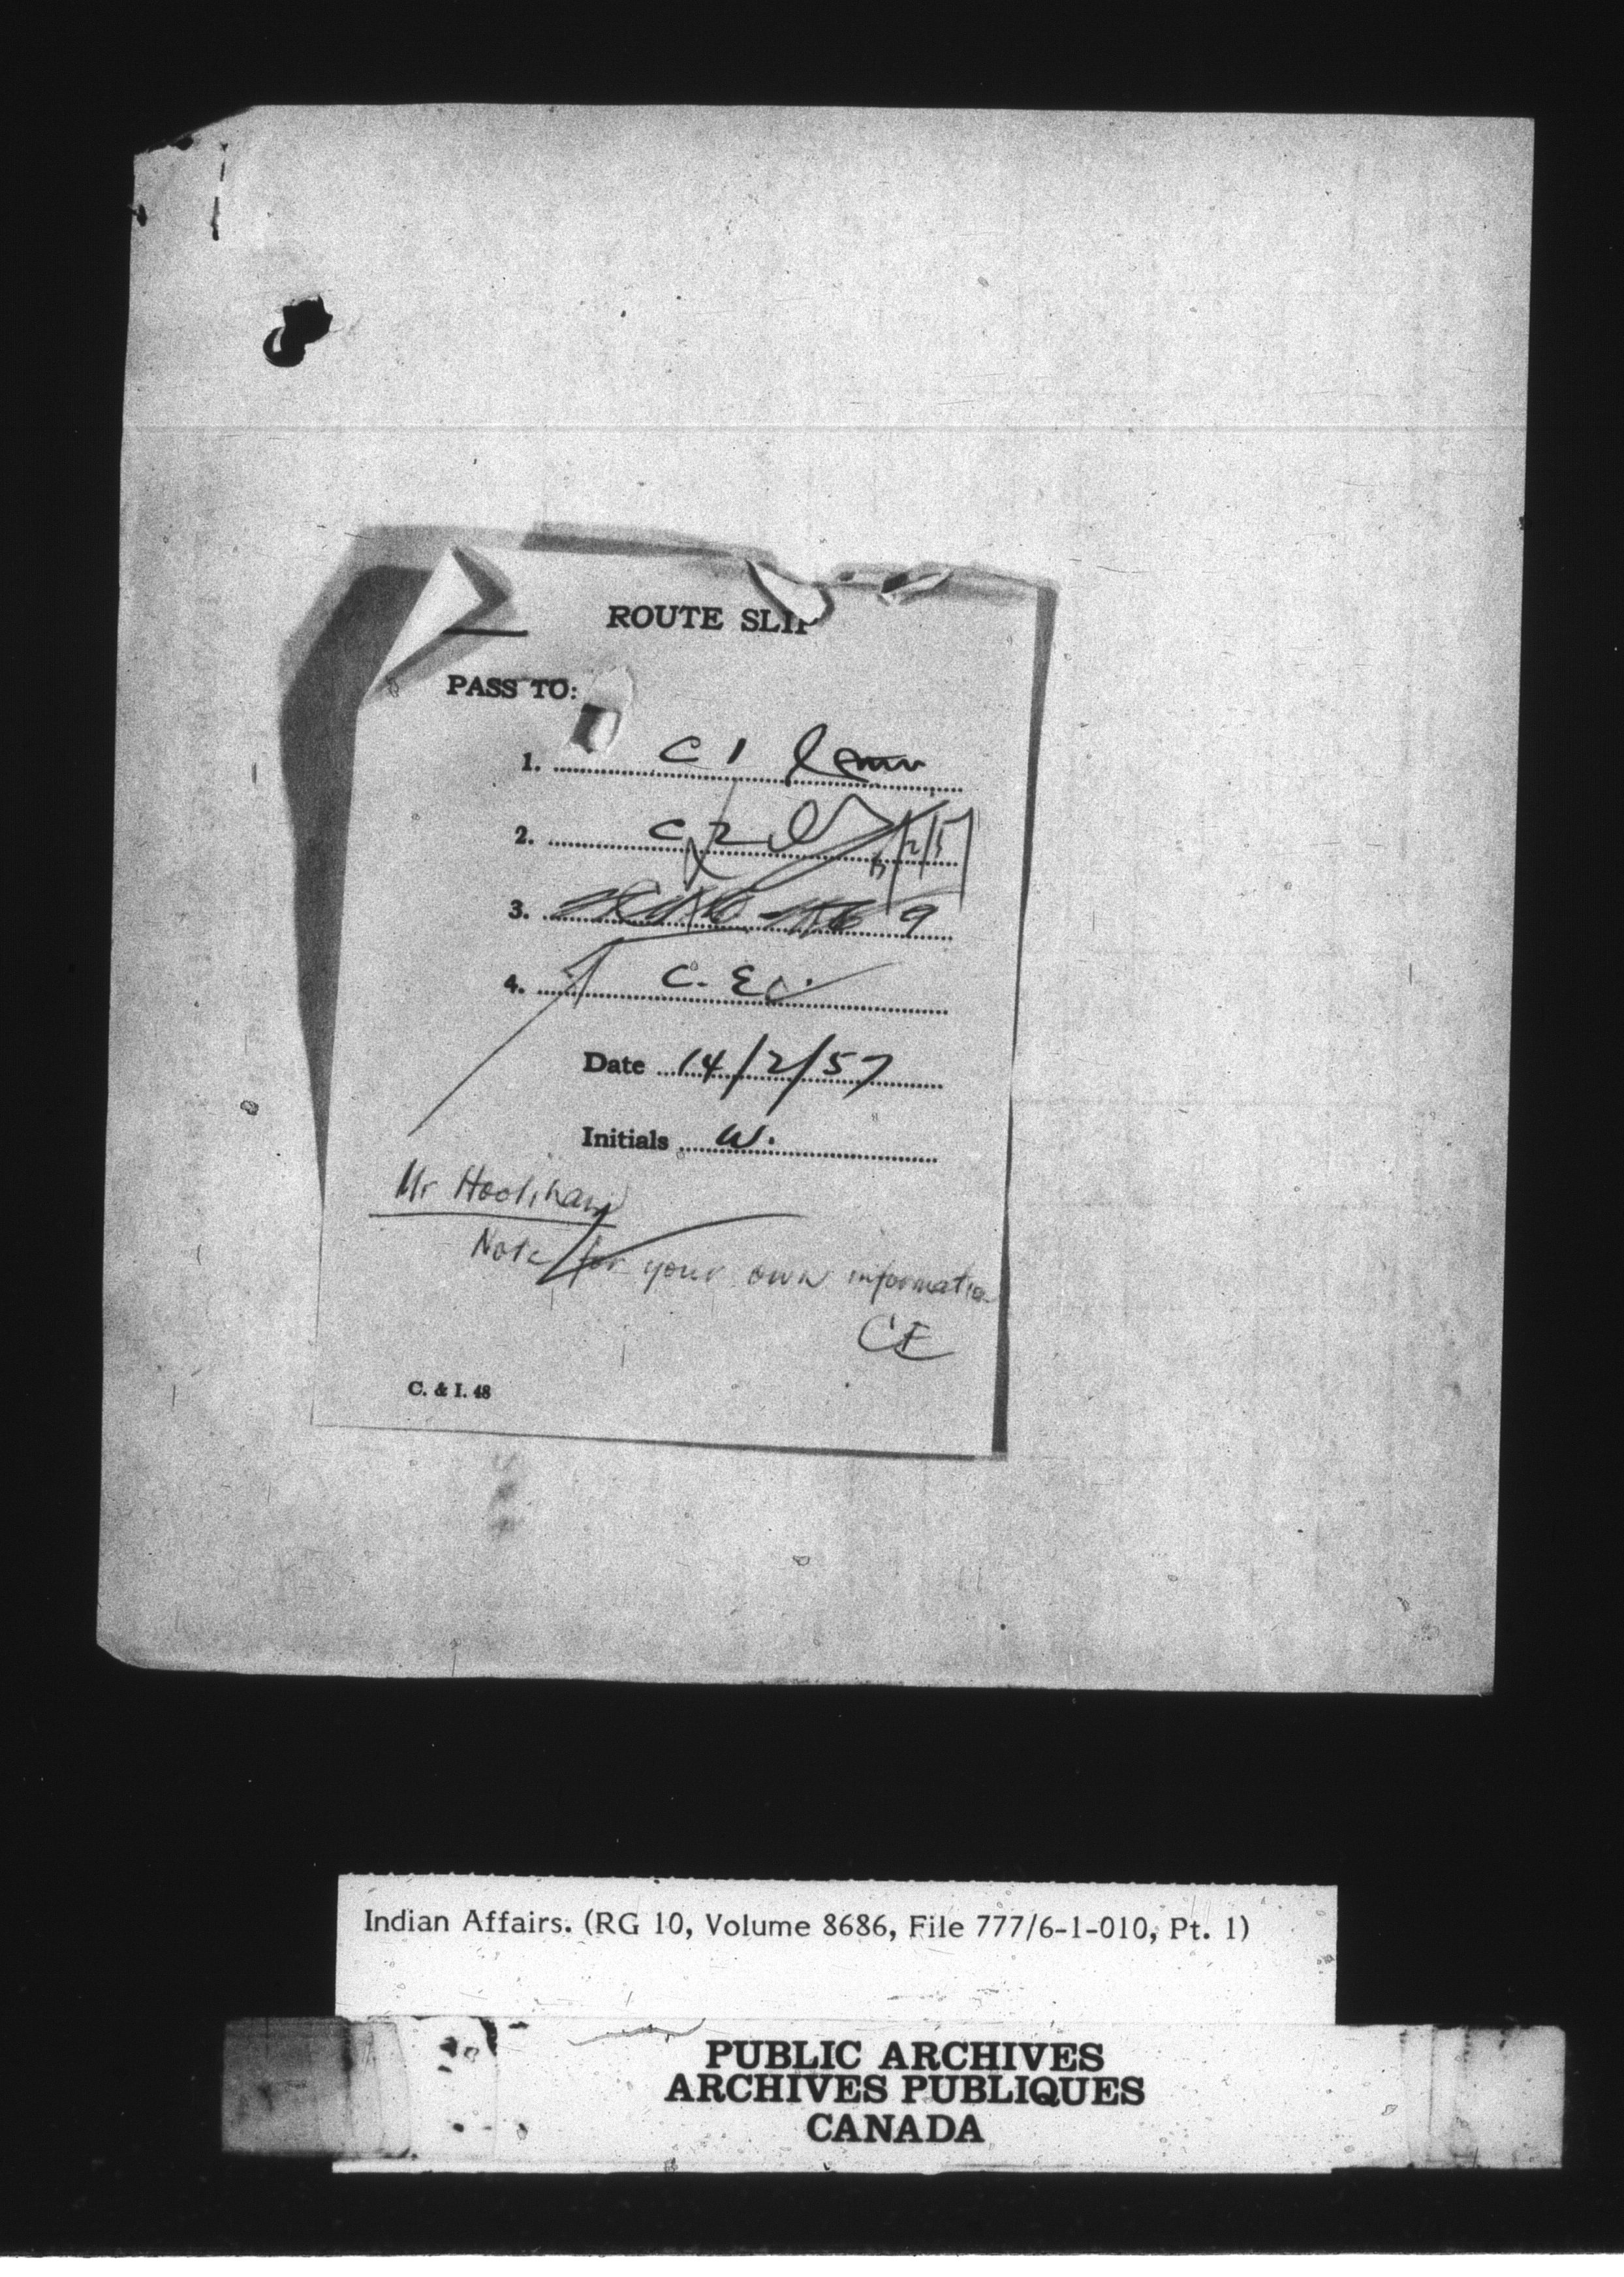 ROUTE SLIP
PASS TO:
1. C 1
2. C 2
3.
4. C. E.
Date 14/2/57
Initials W.
Mr Hoolihan
Note for your own information
CE
C. & I. 48
Indian Affairs. (RG 10, Volume 8686, File 777/6-1-010, Pt. 1)
PUBLIC ARCHIVES
ARCHIVES PUBLIQUES
CANADA